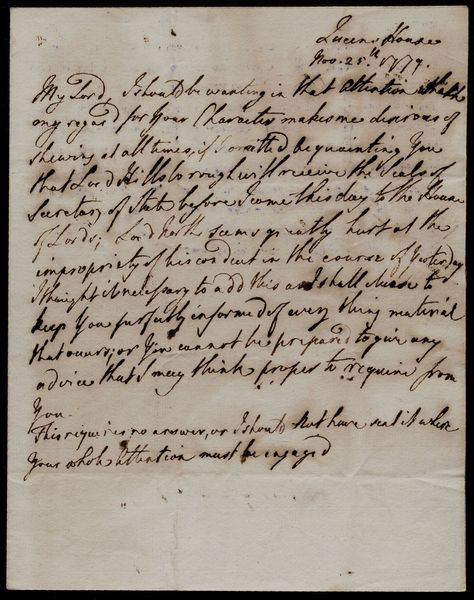 Queens House
Nov. 25th 1779.
My Lord, I should be wanting in that attention which
my regard for Your Character makes me desirous of
shewing at all times, if I omitted acquainting You
that Lord Hillsborough will receive the Seals of
Secretary of State before I come this day to the House
of Lords; Lord North seems greatly hurt at the
impropriety of his conduct in the course of Yesterday
I thought it necessary to add this as I shall chuse to
keep You perfectly informed of every thing material
that occurs, or You cannot be prepared to give any
advice that I may think proper to require from
You.
This requires no answer, or I should not have sent it when
Your whole Attention must be engaged